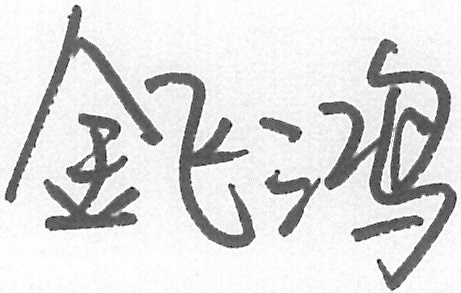 金飞鸿